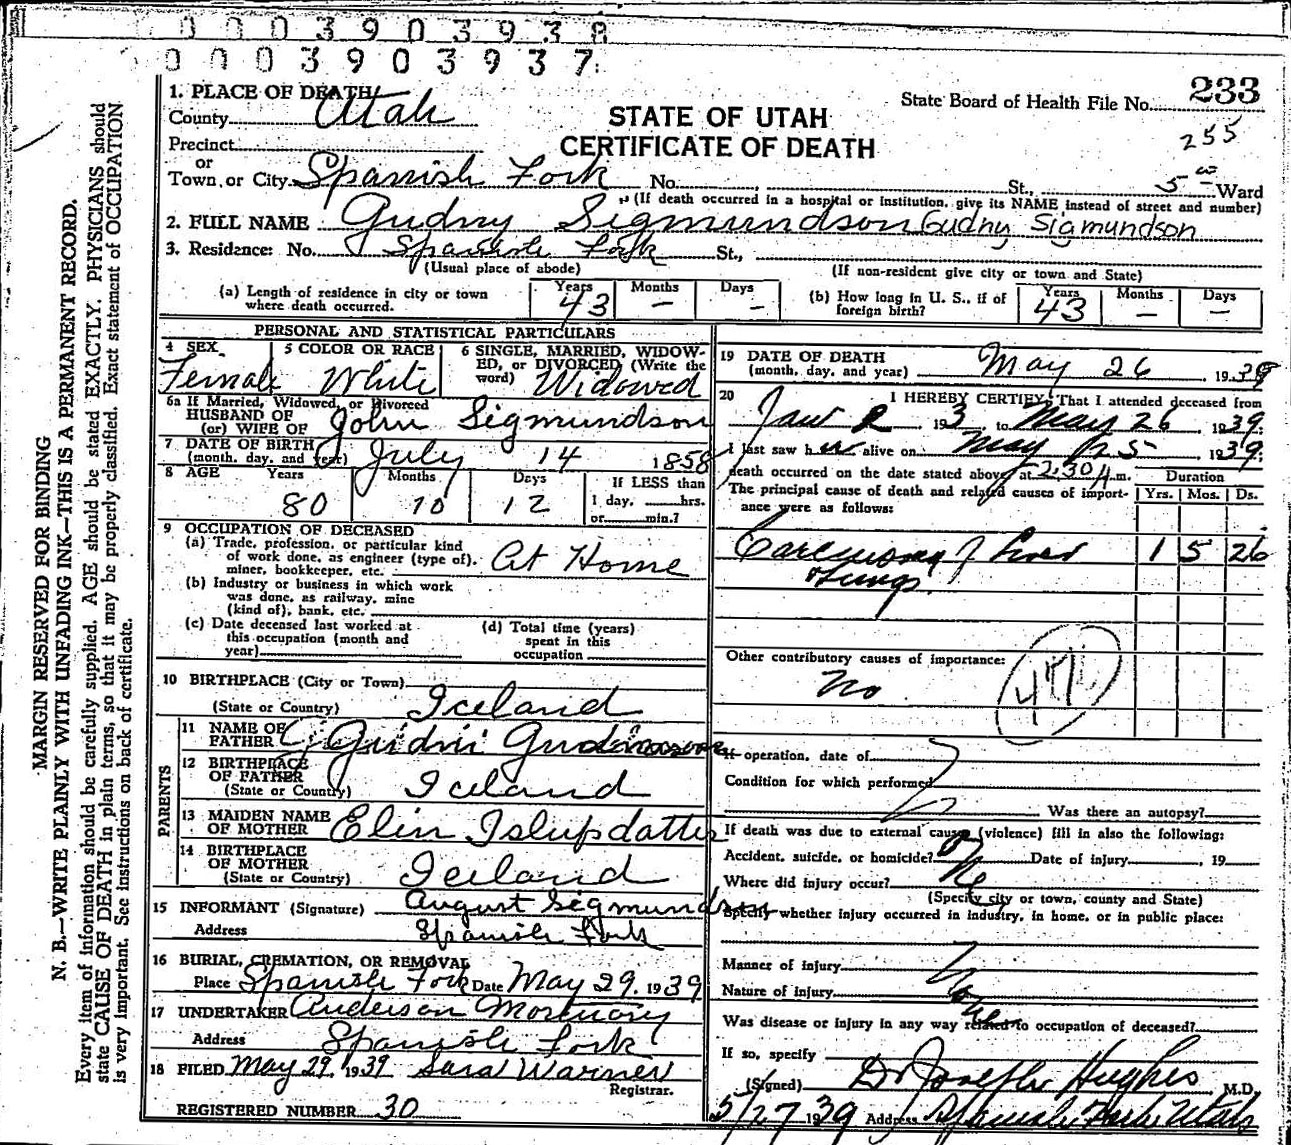 0 0 0 3 9 0 3 9 3 8
0 0 0 3 9 0 3 9 3 7
MARGIN RESERVED FOR BINDING
N. B.—WRITE PLAINLY WITH UNFADING INK—THIS IS A PERMANENT RECORD.
Every item of information should be carefully supplied. AGE should be stated EXACTLY. PHYSICIANS should
state CAUSE OF DEATH in plain terms, so that it may be properly classified. Exact statement of OCCUPATION
is very important. See instructions on back of certificate.
State Board of Health File No. 233
255
STATE OF UTAH
CERTIFICATE OF DEATH
1. PLACE OF DEATH
County Utah
Precinct
or
Town, or City Spanish Fork No. St., 5 Ward
(If death occurred in a hospital or institution, give its NAME instead of street and number)
2. FULL NAME Gudny Sigmundson Gudny Sigmundson
3. Residence: No. Spanish Fork St.,
(Usual place of abode) (If non-resident give city or town and State)
(a) Length of residence in city or town where death occurred. Years 43 Months — Days —
(b) How long in U. S., if of foreign birth? Years 43 Months — Days —
PERSONAL AND STATISTICAL PARTICULARS
4 SEX Female
5 COLOR OR RACE White
6 SINGLE, MARRIED, WIDOWED, or DIVORCED (Write the word) Widowed
6a If Married, Widowed, or Divorced
HUSBAND OF
(or) WIFE OF John Sigmundson
7 DATE OF BIRTH
(month, day, and year) July 14 1858
8 AGE Years 80 Months 10 Days 12 If LESS than 1 day, hrs. or min.?
9 OCCUPATION OF DECEASED
(a) Trade, profession, or particular kind
of work done, as engineer (type of),
miner, bookkeeper, etc. At Home
(b) Industry or business in which work
was done, as railway, mine
(kind of), bank, etc.
(c) Date deceased last worked at
this occupation (month and
year)
(d) Total time (years)
spent in this
occupation
10 BIRTHPLACE (City or Town)
(State or Country) Iceland
PARENTS
11 NAME OF
FATHER Gudni
12 BIRTHPLACE
OF FATHER
(State or Country) Iceland
13 MAIDEN NAME
OF MOTHER Elin
14 BIRTHPLACE
OF MOTHER
(State or Country) Iceland
15 INFORMANT (Signature) August Sigmundson
Address Spanish Fork
16 BURIAL, CREMATION, OR REMOVAL
Place Spanish Fork Date May 29, 1939
17 UNDERTAKER Anderson Mortuary
Address Spanish Fork
18 FILED May 29, 1939 Sara Warner
Registrar.
REGISTERED NUMBER 30
19 DATE OF DEATH
(month, day, and year) May 26, 1939
20 I HEREBY CERTIFY, That I attended deceased from
Jan 2 193 , to May 26 1939.
I last saw h er alive on May 25 1939.
death occurred on the date stated above, at 2.30 A m.
The principal cause of death and related causes of importance were as follows:
Duration
Yrs. Mos. Ds.
Carcinoma of Liver 1 5 26
Lungs
Other contributory causes of importance:
No
If operation, date of
Condition for which performed
Was there an autopsy?
If death was due to external cause (violence) fill in also the following:
Accident, suicide, or homicide? Date of injury , 19
Where did injury occur? No
(Specify city or town, county and State)
Specify whether injury occurred in industry, in home, or in public place:
Manner of injury
Nature of injury
Was disease or injury in any way related to occupation of deceased?
If so, specify
(Signed) Dr Joseph Hughes M.D.
5/27 1939 Address Spanish Fork Utah